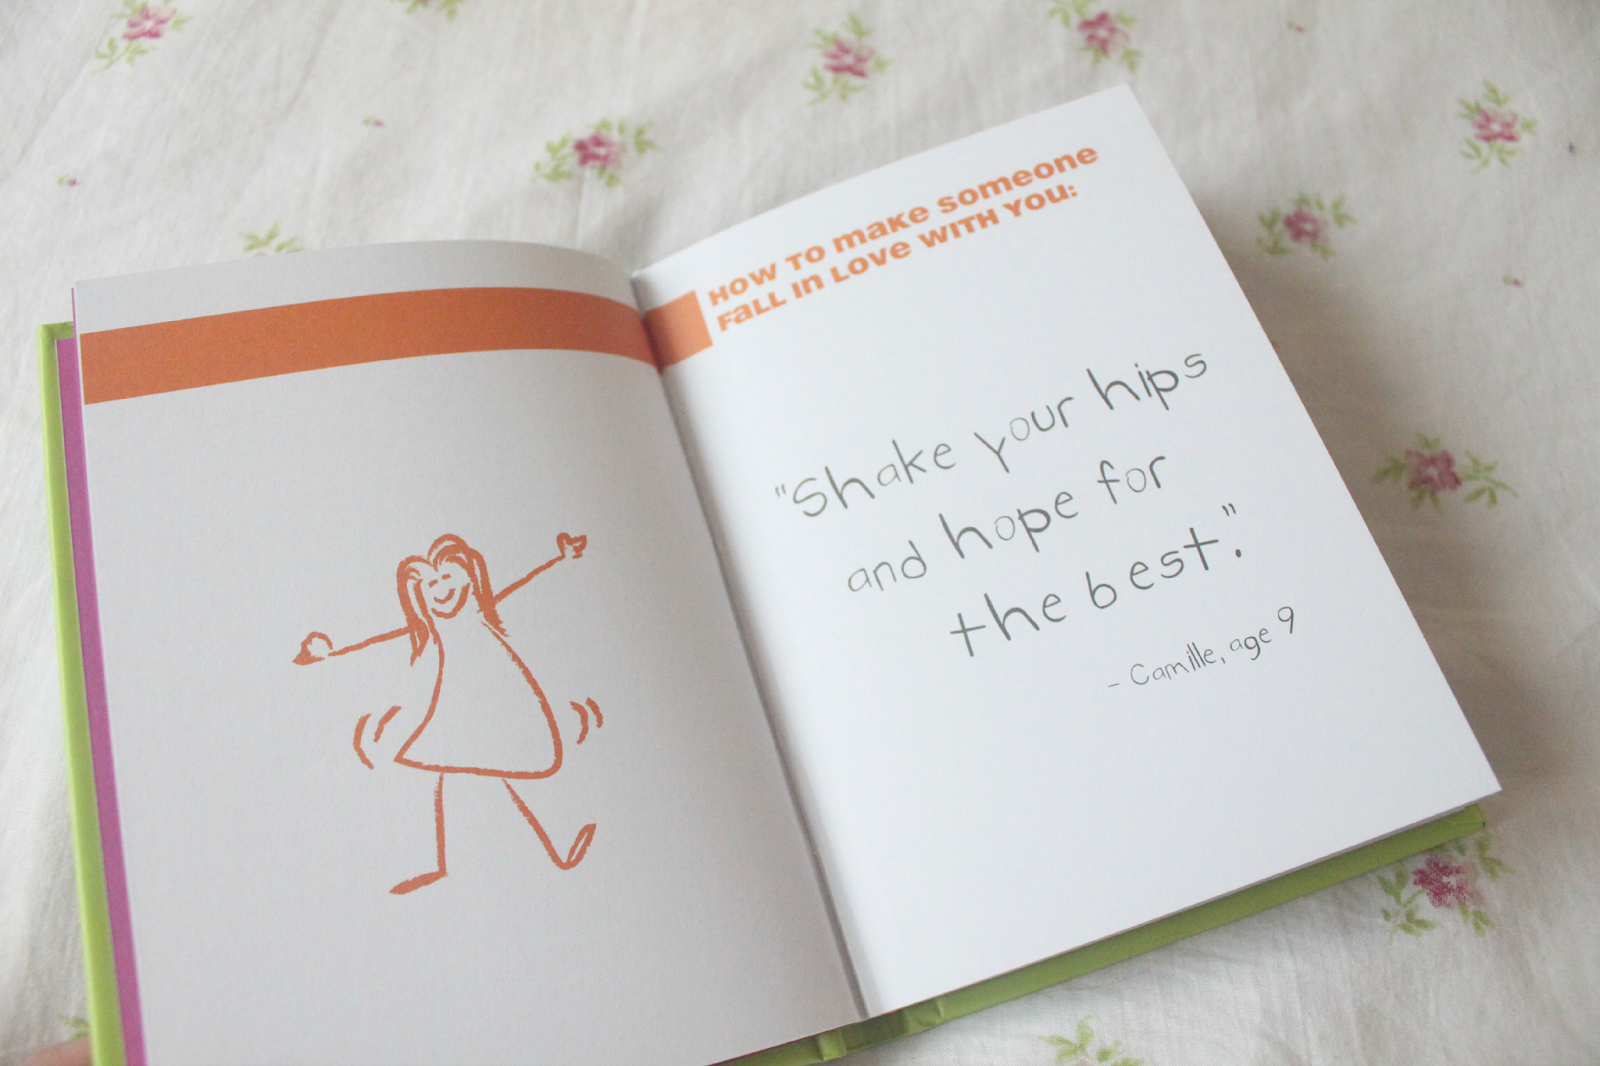 HOW TO make someone
Fall in Love with you:
"Shake your hips
and hope for
the best."
- Camille, age 9